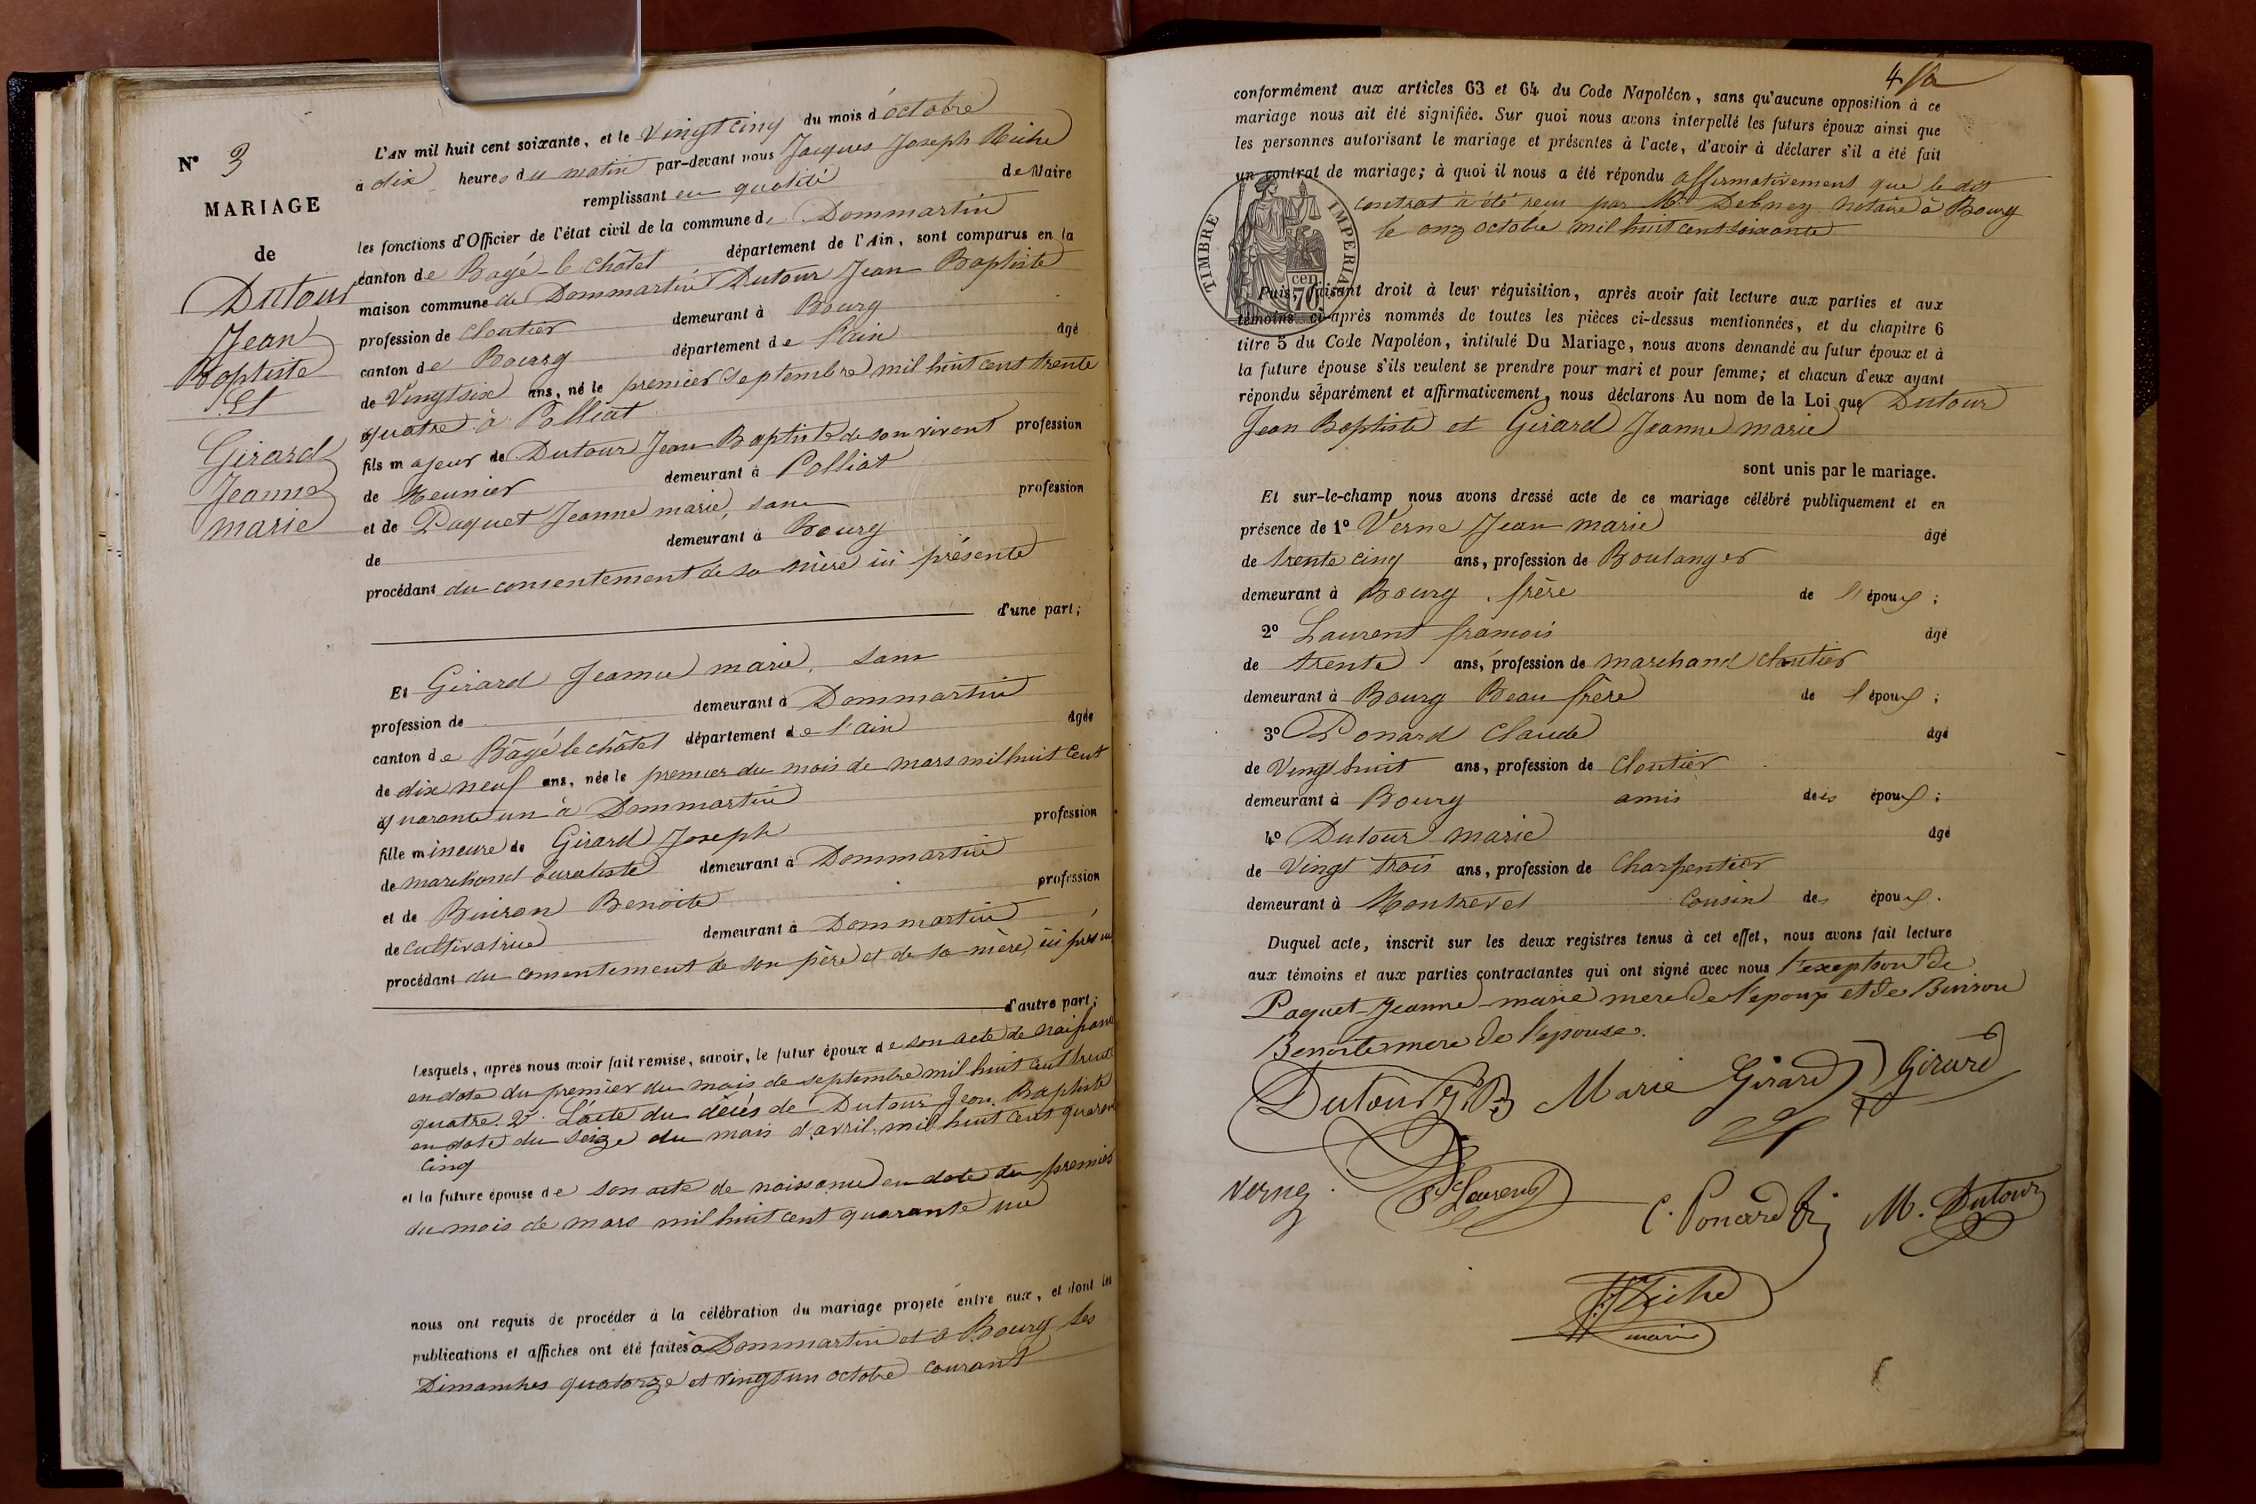 N° 3
MARIAGE
de
Dutour
Jean
Baptiste
Et
Girard
Jeanne
marie
L'AN mil huit cent soixante, et le Vingt cinq du mois d'octobre
à dix heures du matin par-devant nous Jacques Joseph
remplissant en qualité de Maire
les fonctions d'Officier de l'état civil de la commune de Dommartin
canton de Bagé-le châtel département de l'Ain, sont comparus en la
maison commune de Dommartin Dutour Jean Baptiste
profession de cloutier demeurant à Bourg
canton de Bourg département de l'ain âgé
de Vingt six ans, né le premier septembre mil huit cent trente
quatre à Polliat
fils majeur de Dutour Jean Baptiste de son vivant profession
de Meunier demeurant à Polliat
et de Paquet Jeanne marie, sans profession
de demeurant à Bourg
procédant du consentement de sa mère ici présente
d'une part;
Et Girard Jeanne marie, sans
profession de demeurant à Dommartin
canton de Bâgé le châtel département de l'ain âgée
de dix neuf ans, née le premier du mois de mars mil huit cent
quarante un à Dommartin
fille mineure de Girard Joseph profession
de marchand demeurant à Dommartin
et de Buiron Benoite profession
de cultivatrice demeurant à Dommartin
procédant du consentement de son père et de sa mère, ici
d'autre part;
Lesquels, après nous avoir fait remise, savoir, le futur époux de son acte de naissance
en date du premier du mois de septembre mil huit cent trente
quatre. 2° L'acte du décès de Dutour Jean Baptiste
en date du seize du mois d'avril mil huit cent quarante
cinq
et la future épouse de son acte de naissance en date du premier
du mois de mars mil huit cent quarante un
nous ont requis de procéder à la célébration du mariage projeté entre eux, et dont les
publications et affiches ont été faites à Dommartin et à Bourg les
Dimanches quatorze et vingt un octobre courant
4
conformément aux articles 63 et 64 du Code Napoléon, sans qu'aucune opposition à ce
mariage nous ait été signifiée. Sur quoi nous avons interpellé les futurs époux ainsi que
les personnes autorisant le mariage et présentes à l'acte, d'avoir à déclarer s'il a été fait
un contrat de mariage; à quoi il nous a été répondu affirmativement que le dit
contrat à été recu par Me notaire à Bourg
le onze octobre mil huit cent soixante
TIMBRE IMPERIAL
70 cen
Puis, faisant droit à leur réquisition, après avoir fait lecture aux parties et aux
témoins ci-après nommés de toutes les pièces ci-dessus mentionnées, et du chapitre 6
titre 5 du Code Napoléon, intitulé Du Mariage, nous avons demandé au futur époux et à
la future épouse s'ils veulent se prendre pour mari et pour femme; et chacun d'eux ayant
répondu séparément et affirmativement, nous déclarons Au nom de la Loi que Dutour
Jean Baptiste et Girard Jeanne marie
sont unis par le mariage.
Et sur-le-champ nous avons dressé acte de ce mariage célébré publiquement et en
présence de 1° Verne Jean marie âgé
de trente cinq ans, profession de Boulanger
demeurant à Bourg, frère de l'époux;
2° Laurent françois âgé
de trente ans, profession de marchand cloutier
demeurant à Bourg Beau frère de l'époux;
3° Ponard Claude âgé
de Vingt huit ans, profession de Cloutier
demeurant à Bourg amis des époux;
4° Dutour marie âgé
de Vingt trois ans, profession de Charpentier
demeurant à Montrevel Cousin des époux.
Duquel acte, inscrit sur les deux registres tenus à cet effet, nous avons fait lecture
aux témoins et aux parties contractantes qui ont signé avec nous l'exception de
Paquet Jeanne marie mere de l'epoux et de Buiron
Benoite mere de l'epouse.
Dutour J. B Marie Girard Girard
Verne Laurent C. Ponard M. Dutour
maire